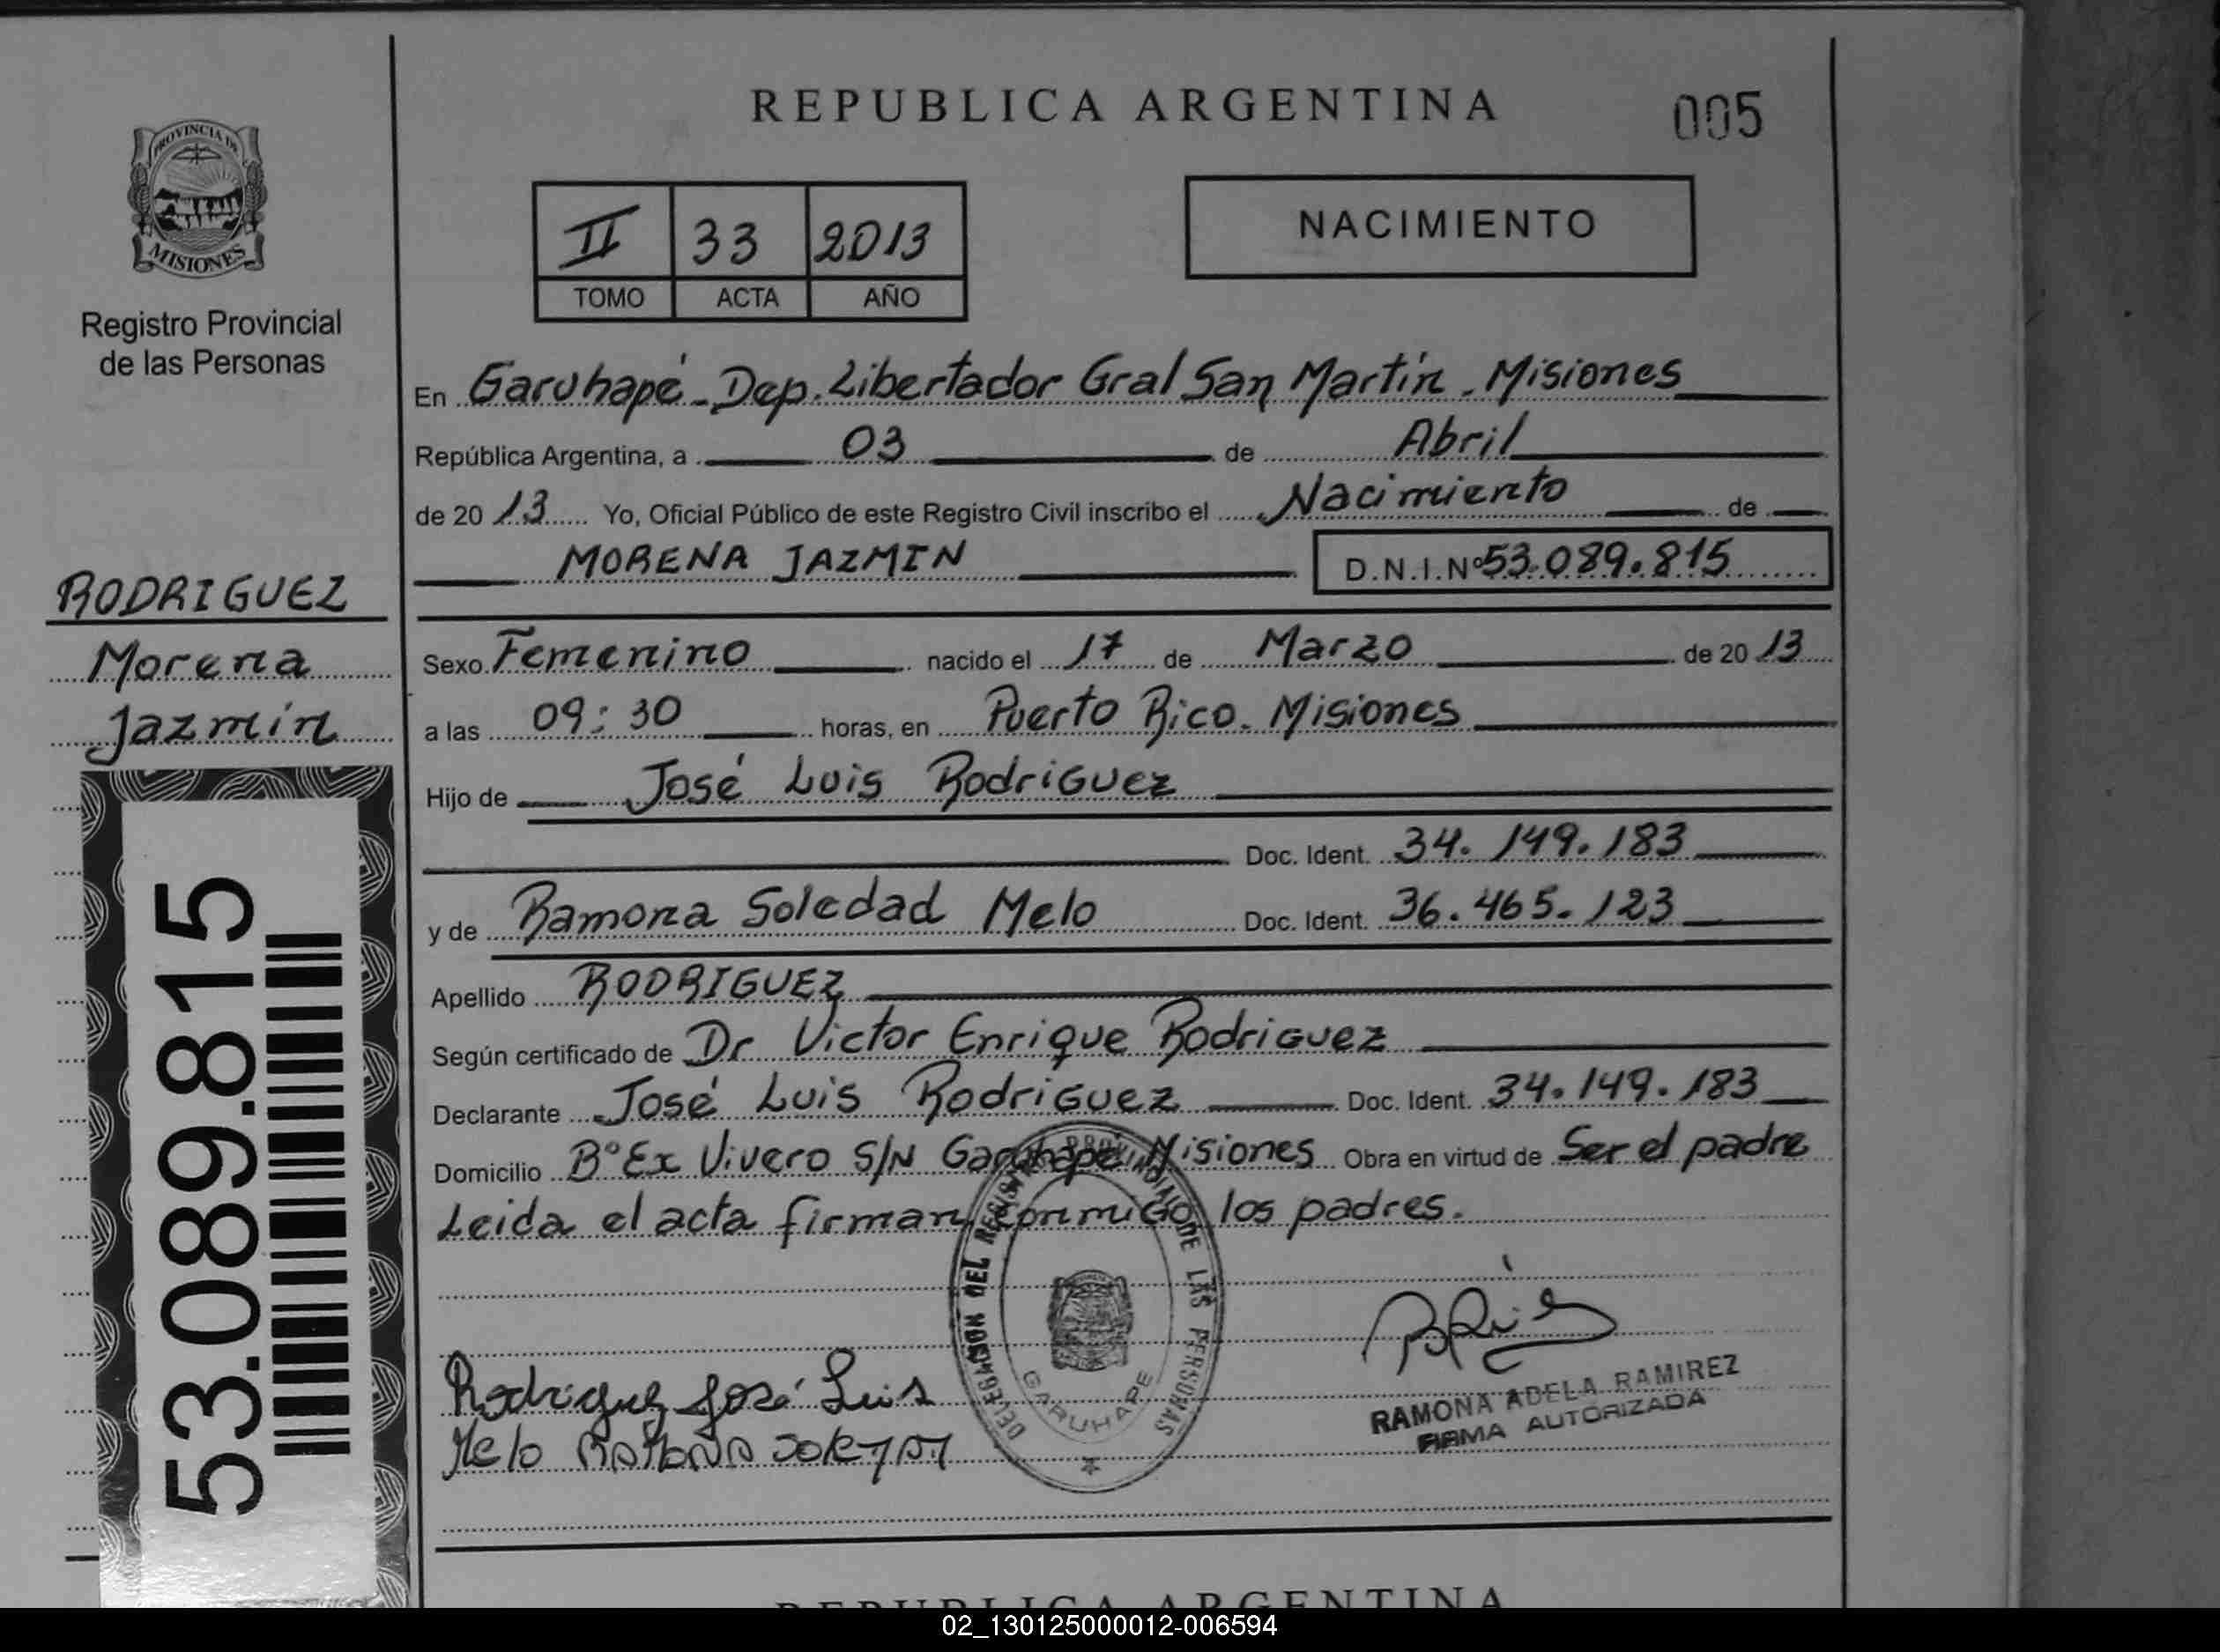 REPUBLICA ARGENTINA
005
PROVINCIA DE
MISIONES
Registro Provincial
de las Personas
II 33 2013
TOMO ACTA AÑO
NACIMIENTO
En Garuhapé - Dep. Libertador Gral San Martín. Misiones
República Argentina, a 03 de Abril
de 20 13 Yo, Oficial Público de este Registro Civil inscribo el Nacimiento de
MORENA JAZMIN D.N.I.Nº 53.089.815
RODRIGUEZ
Morena
Jazmín
53.089.815
Sexo Femenino nacido el 17 de Marzo de 20 13
a las 09:30 horas, en Puerto Rico. Misiones
Hijo de José Luis Rodriguez
Doc. Ident. 34.149.183
y de Ramona Soledad Melo Doc. Ident. 36.465.123
Apellido RODRIGUEZ
Según certificado de Dr Victor Enrique Rodriguez
Declarante José Luis Rodriguez Doc. Ident. 34.149.183
Domicilio Bº Ex Vivero S/N Garuhapé Misiones Obra en virtud de Ser el padre
Leida el acta firman conmigo los padres.
DELEGACION DEL REGISTRO PROVINCIAL DE LAS PERSONAS
GARUHAPE
Rodriguez José Luis
Melo Ramona
RAMONA ADELA RAMIREZ
FIRMA AUTORIZADA
REPUBLICA ARGENTINA
02_130125000012-006594